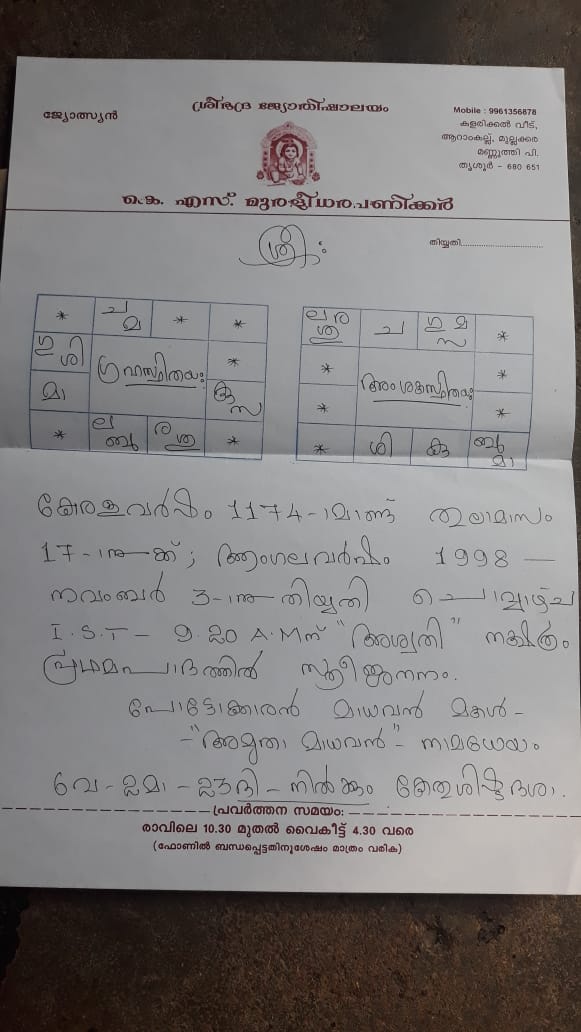 ശ്രീഭദ്ര ജ്യോതിഷാലയം
ജ്യോത്സ്യൻ
Mobile : 9961356878
കളരിക്കൽ വീട്,
ആറാംകല്ല്, മുല്ലക്കര
മണ്ണുത്തി പി.
തൃശൂർ - 680 651
കെ. എസ്. മുരളീധര പണിക്കർ
ശ്രീഃ
തിയ്യതി
* ച മ * *
ഗു ശി ഗ്രഹസ്ഥിതയഃ *
മാ കു സ
* ല ബു ര ശു *
ല ര ശു ച ഗു മ സ *
* അംശകസ്ഥിതയഃ *
* *
* ശി കു ബു മാ
കേരളവർഷം 1174-ാമാണ്ട് തുലാമാസം
17-ാം നു-ക്ക് ; ആംഗലവർഷം 1998 —
നവംബർ 3-ാം തിയ്യതി ചൊവ്വാഴ്ച
I.S.T - 9.20 A.M ന് "അശ്വതി" നക്ഷത്രം
പ്രഥമപാദത്തിൽ സ്ത്രീജനനം.
പോട്ടോക്കാരൻ മാധവൻ മകൾ -
- "അമൃതാ മാധവൻ" - നാമധേയം
6 വ - 2 മാ - 23 ദി - നിൽക്കും കേതുശിഷ്ടദശാ.
പ്രവർത്തന സമയം:
രാവിലെ 10.30 മുതൽ വൈകീട്ട് 4.30 വരെ
(ഫോണിൽ ബന്ധപ്പെട്ടതിനുശേഷം മാത്രം വരിക)